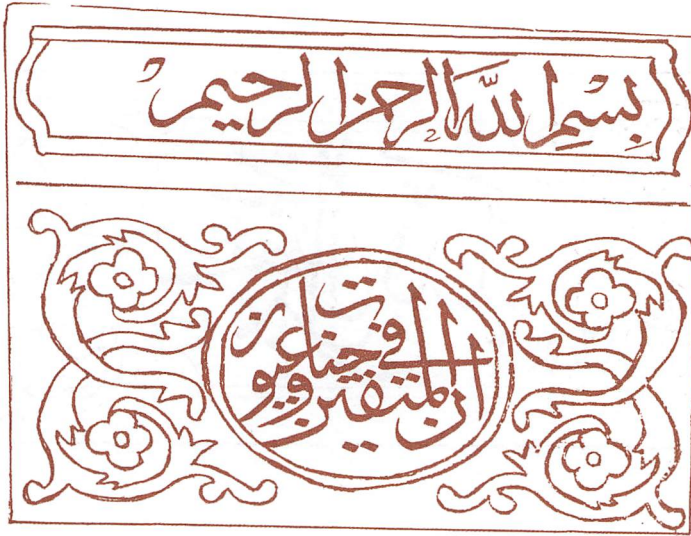 بِسْمِ اللَّهِ الرحمن الرحيم
ان المتقين في جنات وعيون